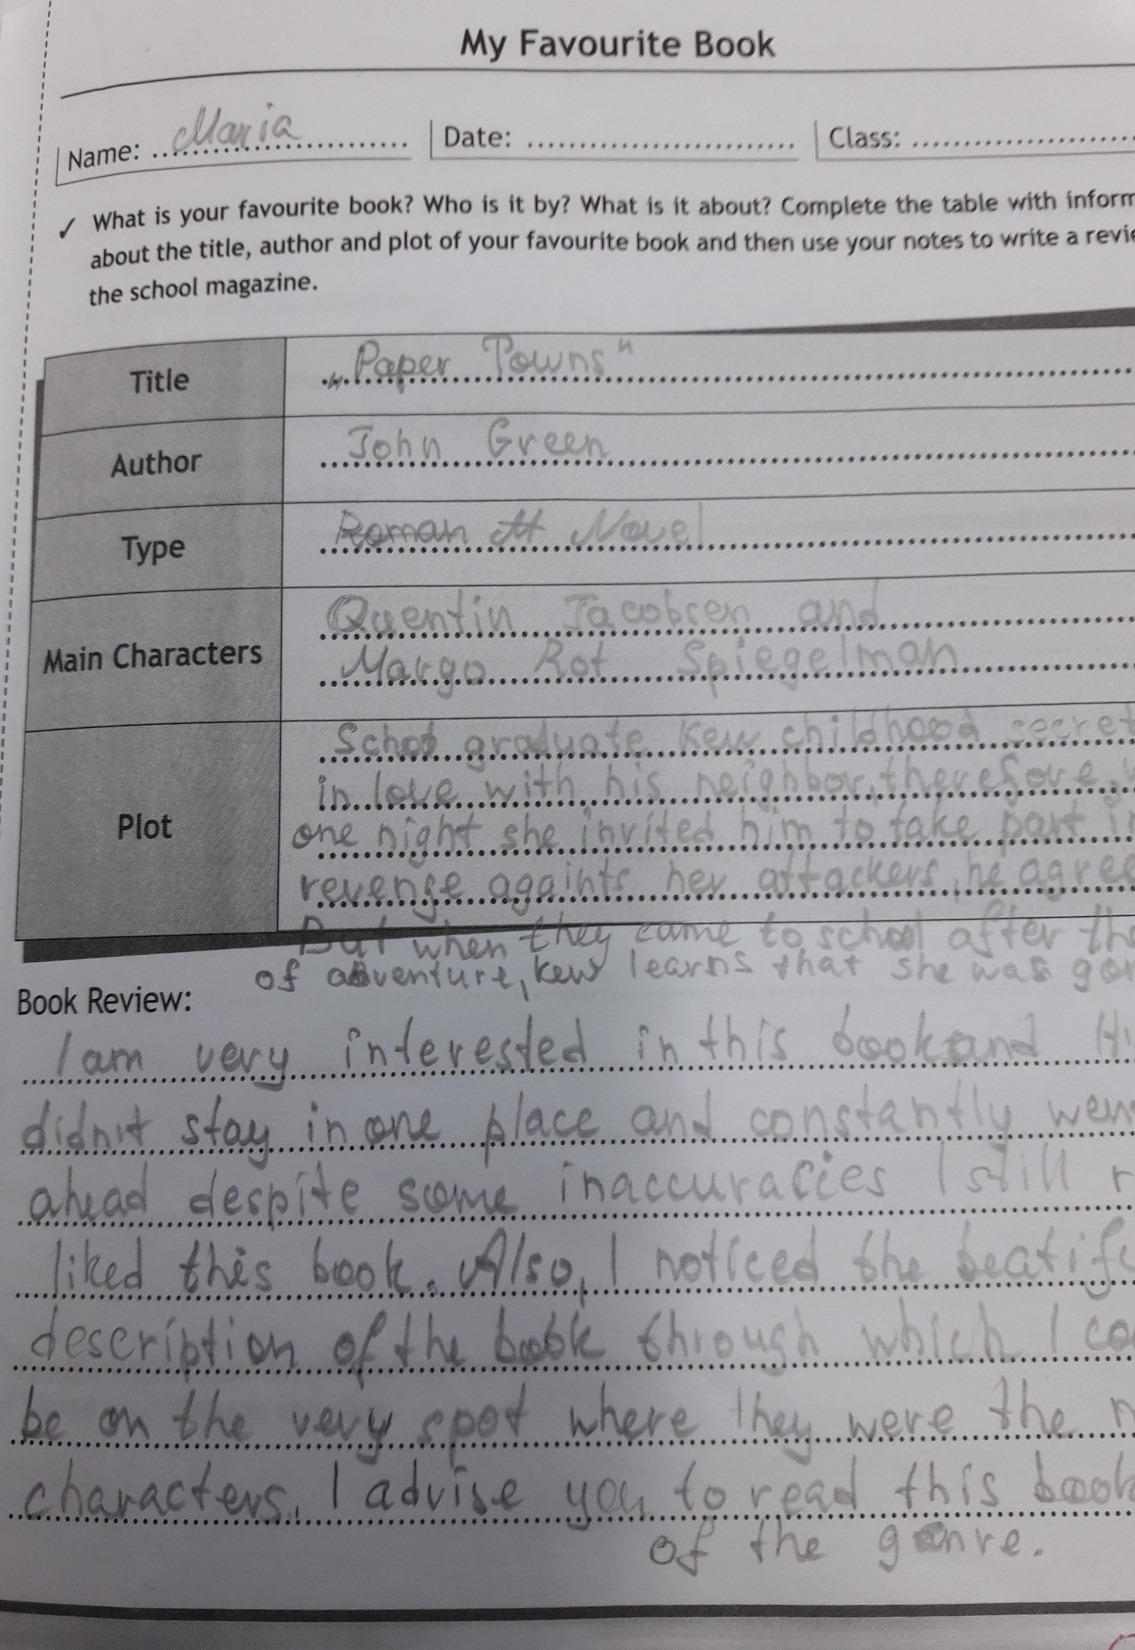 My Favourite Book
Name: Maria
Date:
Class:
✓ What is your favourite book? Who is it by? What is it about? Complete the table with inform
about the title, author and plot of your favourite book and then use your notes to write a revie
the school magazine.
Title
„Paper Towns"
Author
John Green
Type
Roman Novel
Main Characters
Quentin Jacobsen and
Margo Rot Spiegelman
Plot
School graduate Kew childhood secret
in love with his neighbor, therefore,
one night she invited him to take part in
revenge againts her attackers, he agree
But when they came to school after the
of adventure, kew learns that she was gon
Book Review:
I am very interested in this book and
didn't stay in one place and constantly wen
ahead despite some inaccuracies I still r
liked this book. Also, I noticed the beatifu
description of the book through which I co
be on the very spot where they were the
characters. I advise you to read this book
of the genre.